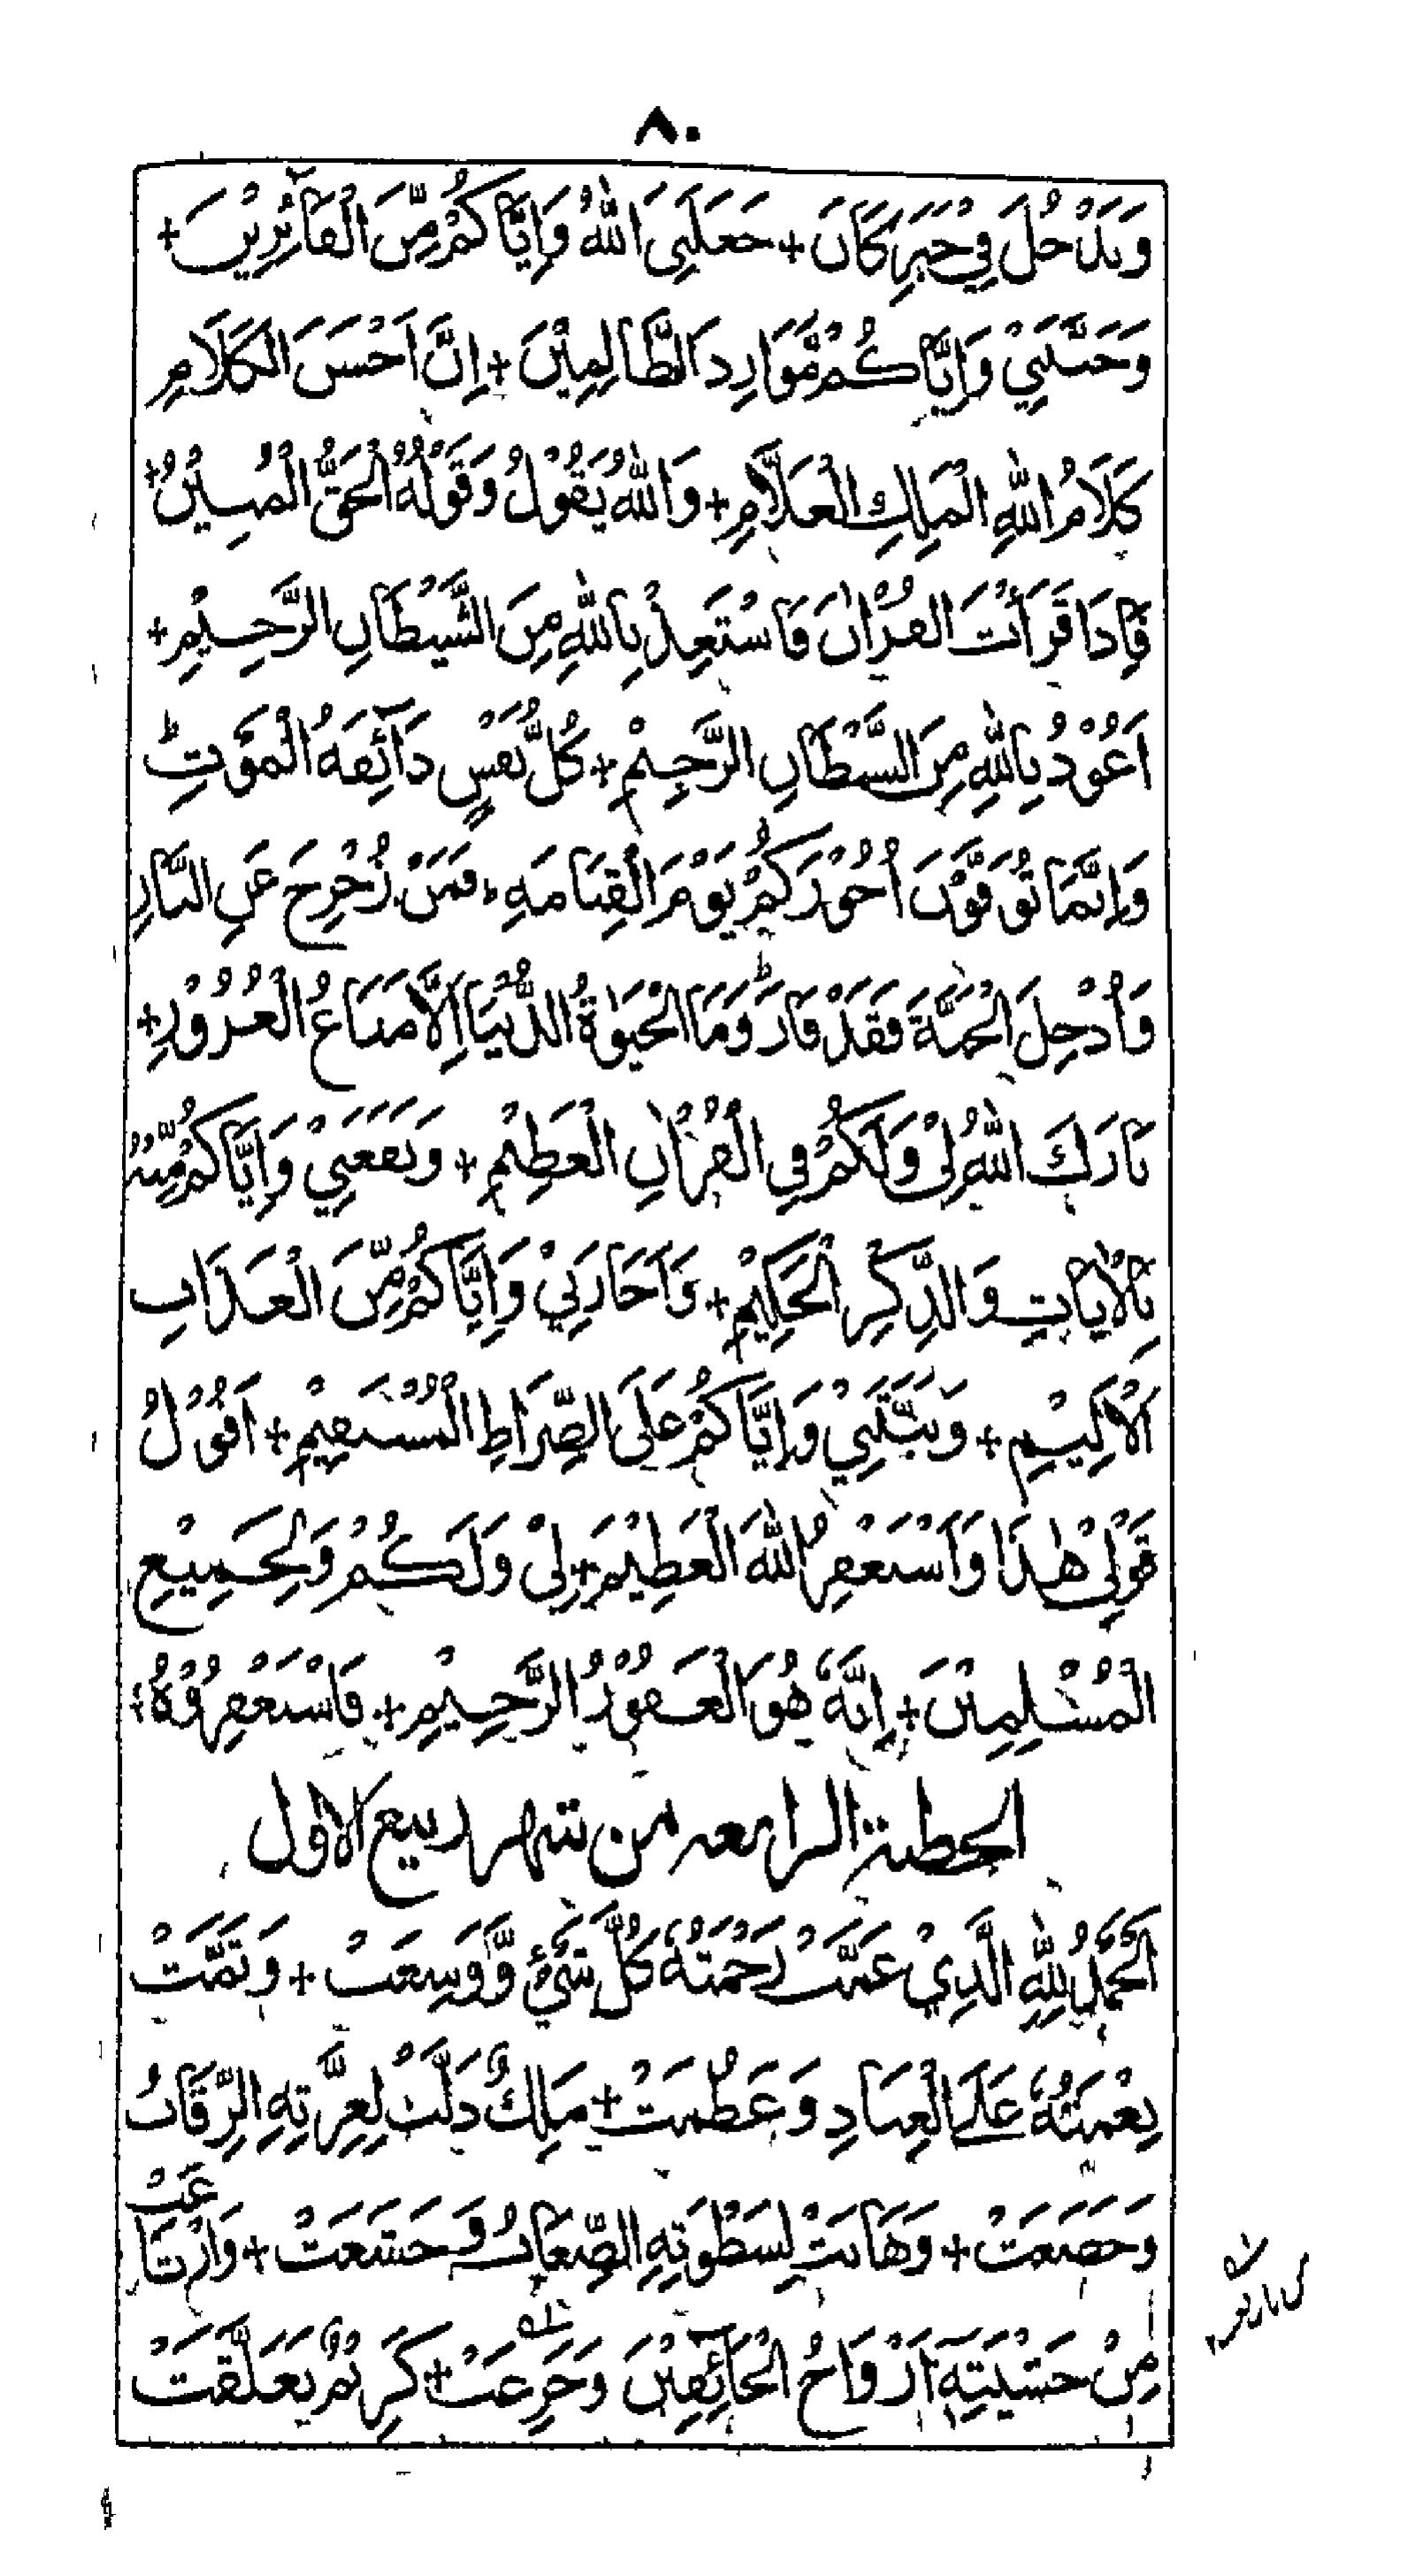 ٨٠
وَيَدْخُلَ فِيْ خَبَرِ كَانَ + جَعَلَنِيَ اللّٰهُ وَاِيَّاكُمْ مِّنَ الْفَآئِزِيْنَ +
وَجَنَّبَنِيْ وَاِيَّاكُمْ مَّوَارِدَ الظَّالِمِيْنَ + اِنَّ اَحْسَنَ الْكَلَامِ
كَلَامُ اللّٰهِ الْمَلِكِ الْعَلَّامِ + وَاللّٰهُ يَقُوْلُ وَقَوْلُهُ الْحَقُّ الْمُبِيْنُ +
فَاِذَا قَرَأْتَ الْقُرْاٰنَ فَاسْتَعِذْ بِاللّٰهِ مِنَ الشَّيْطَانِ الرَّجِيْمِ +
اَعُوْذُ بِاللّٰهِ مِنَ الشَّيْطَانِ الرَّجِيْمِ + كُلُّ نَفْسٍ ذَآئِقَةُ الْمَوْتِ ط
وَاِنَّمَا تُوَفَّوْنَ اُجُوْرَكُمْ يَوْمَ الْقِيَامَةِ ، فَمَنْ زُحْزِحَ عَنِ النَّارِ
وَاُدْخِلَ الْجَنَّةَ فَقَدْ فَازَ ط وَمَا الْحَيٰوةُ الدُّنْيَا اِلَّا مَتَاعُ الْغُرُوْرِ +
بَارَكَ اللّٰهُ لِيْ وَلَكُمْ فِي الْقُرْاٰنِ الْعَظِيْمِ + وَنَفَعَنِيْ وَاِيَّاكُمْ مِّنْهُ
بِالْاٰيَاتِ وَالذِّكْرِ الْحَكِيْمِ + وَاَجَارَنِيْ وَاِيَّاكُمْ مِّنَ الْعَذَابِ
الْاَلِيْمِ + وَثَبَّتَنِيْ وَاِيَّاكُمْ عَلَى الصِّرَاطِ الْمُسْتَقِيْمِ + اَقُوْلُ
قَوْلِيْ هٰذَا وَاَسْتَغْفِرُ اللّٰهَ الْعَظِيْمَ + لِيْ وَلَكُمْ وَلِجَمِيْعِ
الْمُسْلِمِيْنَ + اِنَّهٗ هُوَ الْغَفُوْرُ الرَّحِيْمُ + فَاسْتَغْفِرُوْهُ +
الخطبة الرابعة من شهر ربيع الاول
اَلْحَمْدُ لِلّٰهِ الَّذِيْ عَمَّتْ رَحْمَتُهٗ كُلَّ شَيْءٍ وَّوَسِعَتْ + وَتَمَّتْ
نِعْمَتُهٗ عَلَى الْعِبَادِ وَعَظُمَتْ + مَلِكٌ ذَلَّتْ لِعِزَّتِهِ الرِّقَابُ
وَخَضَعَتْ + وَهَابَتْ لِسَطْوَتِهِ الصِّعَابُ وَخَشَعَتْ + وَارْتَاعَتْ
مِنْ خَشْيَتِهٖ اَرْوَاحُ الْخَآئِفِيْنَ وَجَزِعَتْ + كَرِيْمٌ تَعَلَّقَتْ